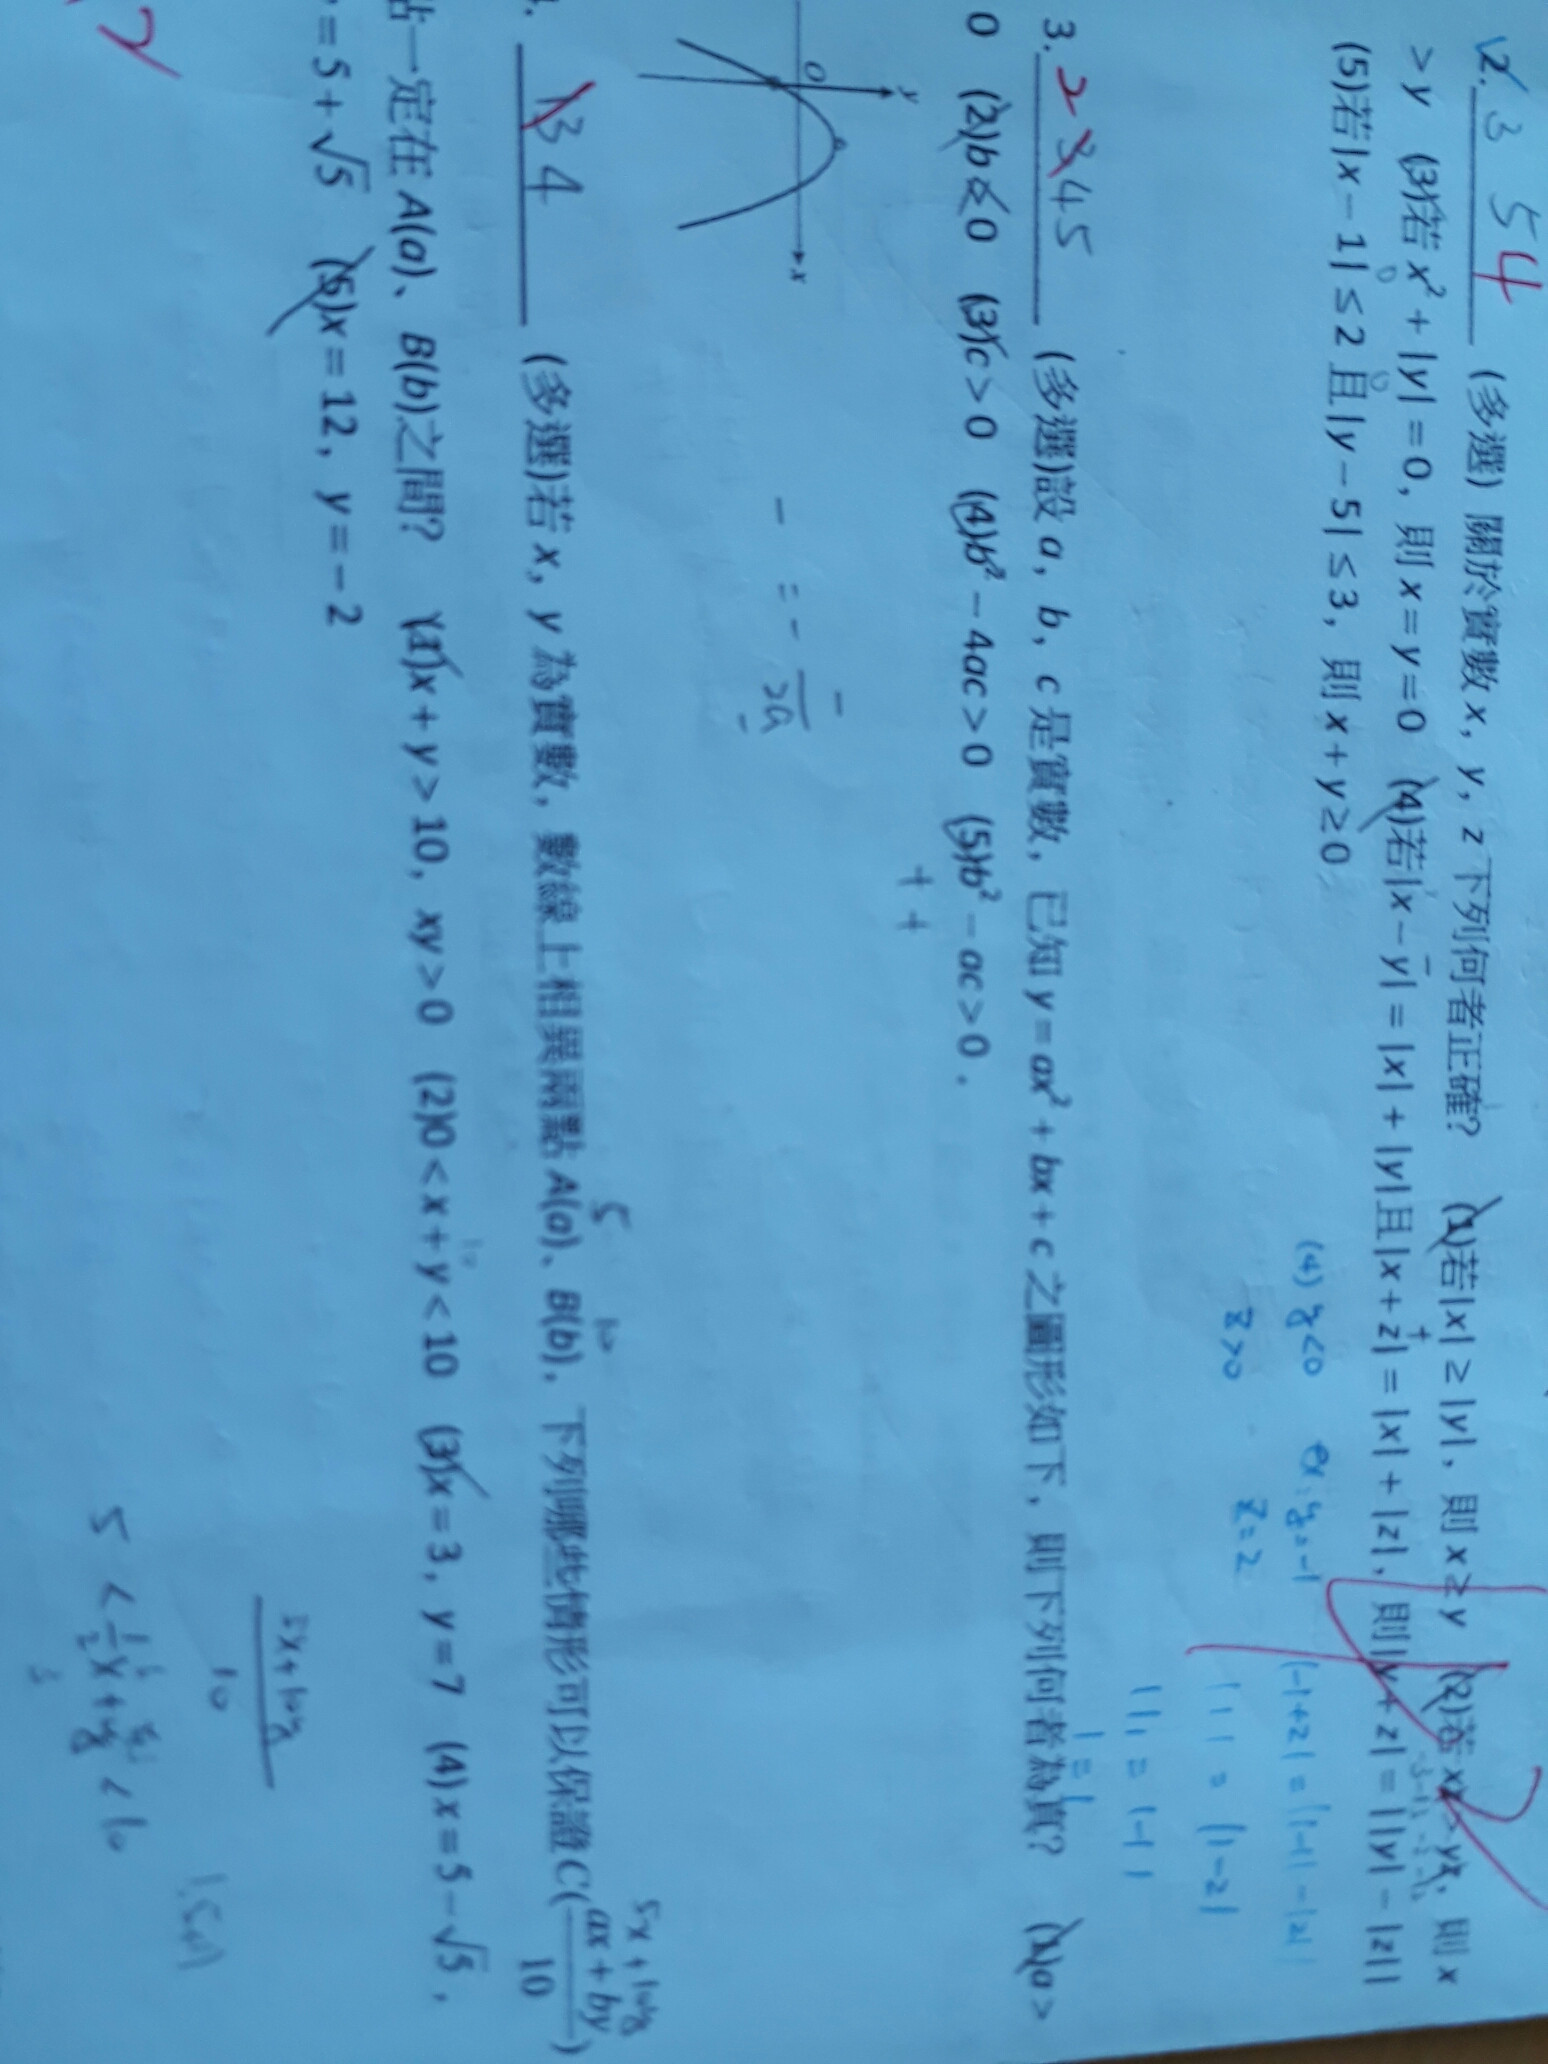 2. 3 5 4 (多選) 關於實數 x, y, z 下列何者正確? (1)若|x| ≥ |y|, 則 x ≥ y (2)若 xz > yz, 則 x
> y (3)若 x² + |y| = 0, 則 x = y = 0 (4)若|x − y| = |x| + |y|且|x + z| = |x| + |z|, 則|y + z| = ||y| − |z||
(5)若|x − 1| ≤ 2 且|y − 5| ≤ 3, 則 x + y ≥ 0
(4) y<0 ex: y=-1 |-1+2| = ||-1|-|2||
z>0 z=2 |1| = |1-2|
|1| = |-1|
1 = 1
3. 2 3 4 5 (多選)設 a, b, c 是實數, 已知 y = ax² + bx + c 之圖形如下, 則下列何者為真? (1)a >
0 (2)b ≤ 0 (3)c > 0 (4)b² − 4ac > 0 (5)b² − ac > 0.
+ +
y
O
x
− = − −/2a
5 10 5x + 10y
. 1 3 4 (多選)若 x, y 為實數, 數線上相異兩點 A(a)、B(b), 下列哪些情形可以保證 C((ax + by)/10)
點一定在 A(a)、B(b)之間? (1)x + y > 10, xy > 0 (2)0 < x + y < 10 (3)x = 3, y = 7 (4) x = 5 − √5,
= 5 + √5 (5)x = 12, y = −2
5x + 10y
10
5 < 1/2 x + y < 10